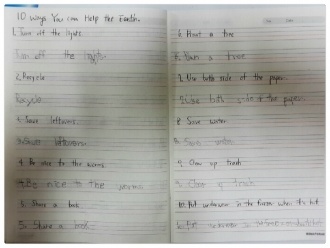 10 ways You can Help the Earth.
1. Turn off the lights
Turn off the lights
2. Recycle
Recycle
3. Save leftovers
3. Save leftovers
4. Be nice to the worms
4. Be nice to the worms
5. Share a book
5. Share a book
6. Plant a tree
a tree
7. Use both side of the paper.
7. Use both side of the paper.
8. Save water
Save water
9. Clean up trash
9. Clean up trash
10. Put underwear in the freezer when it's hot